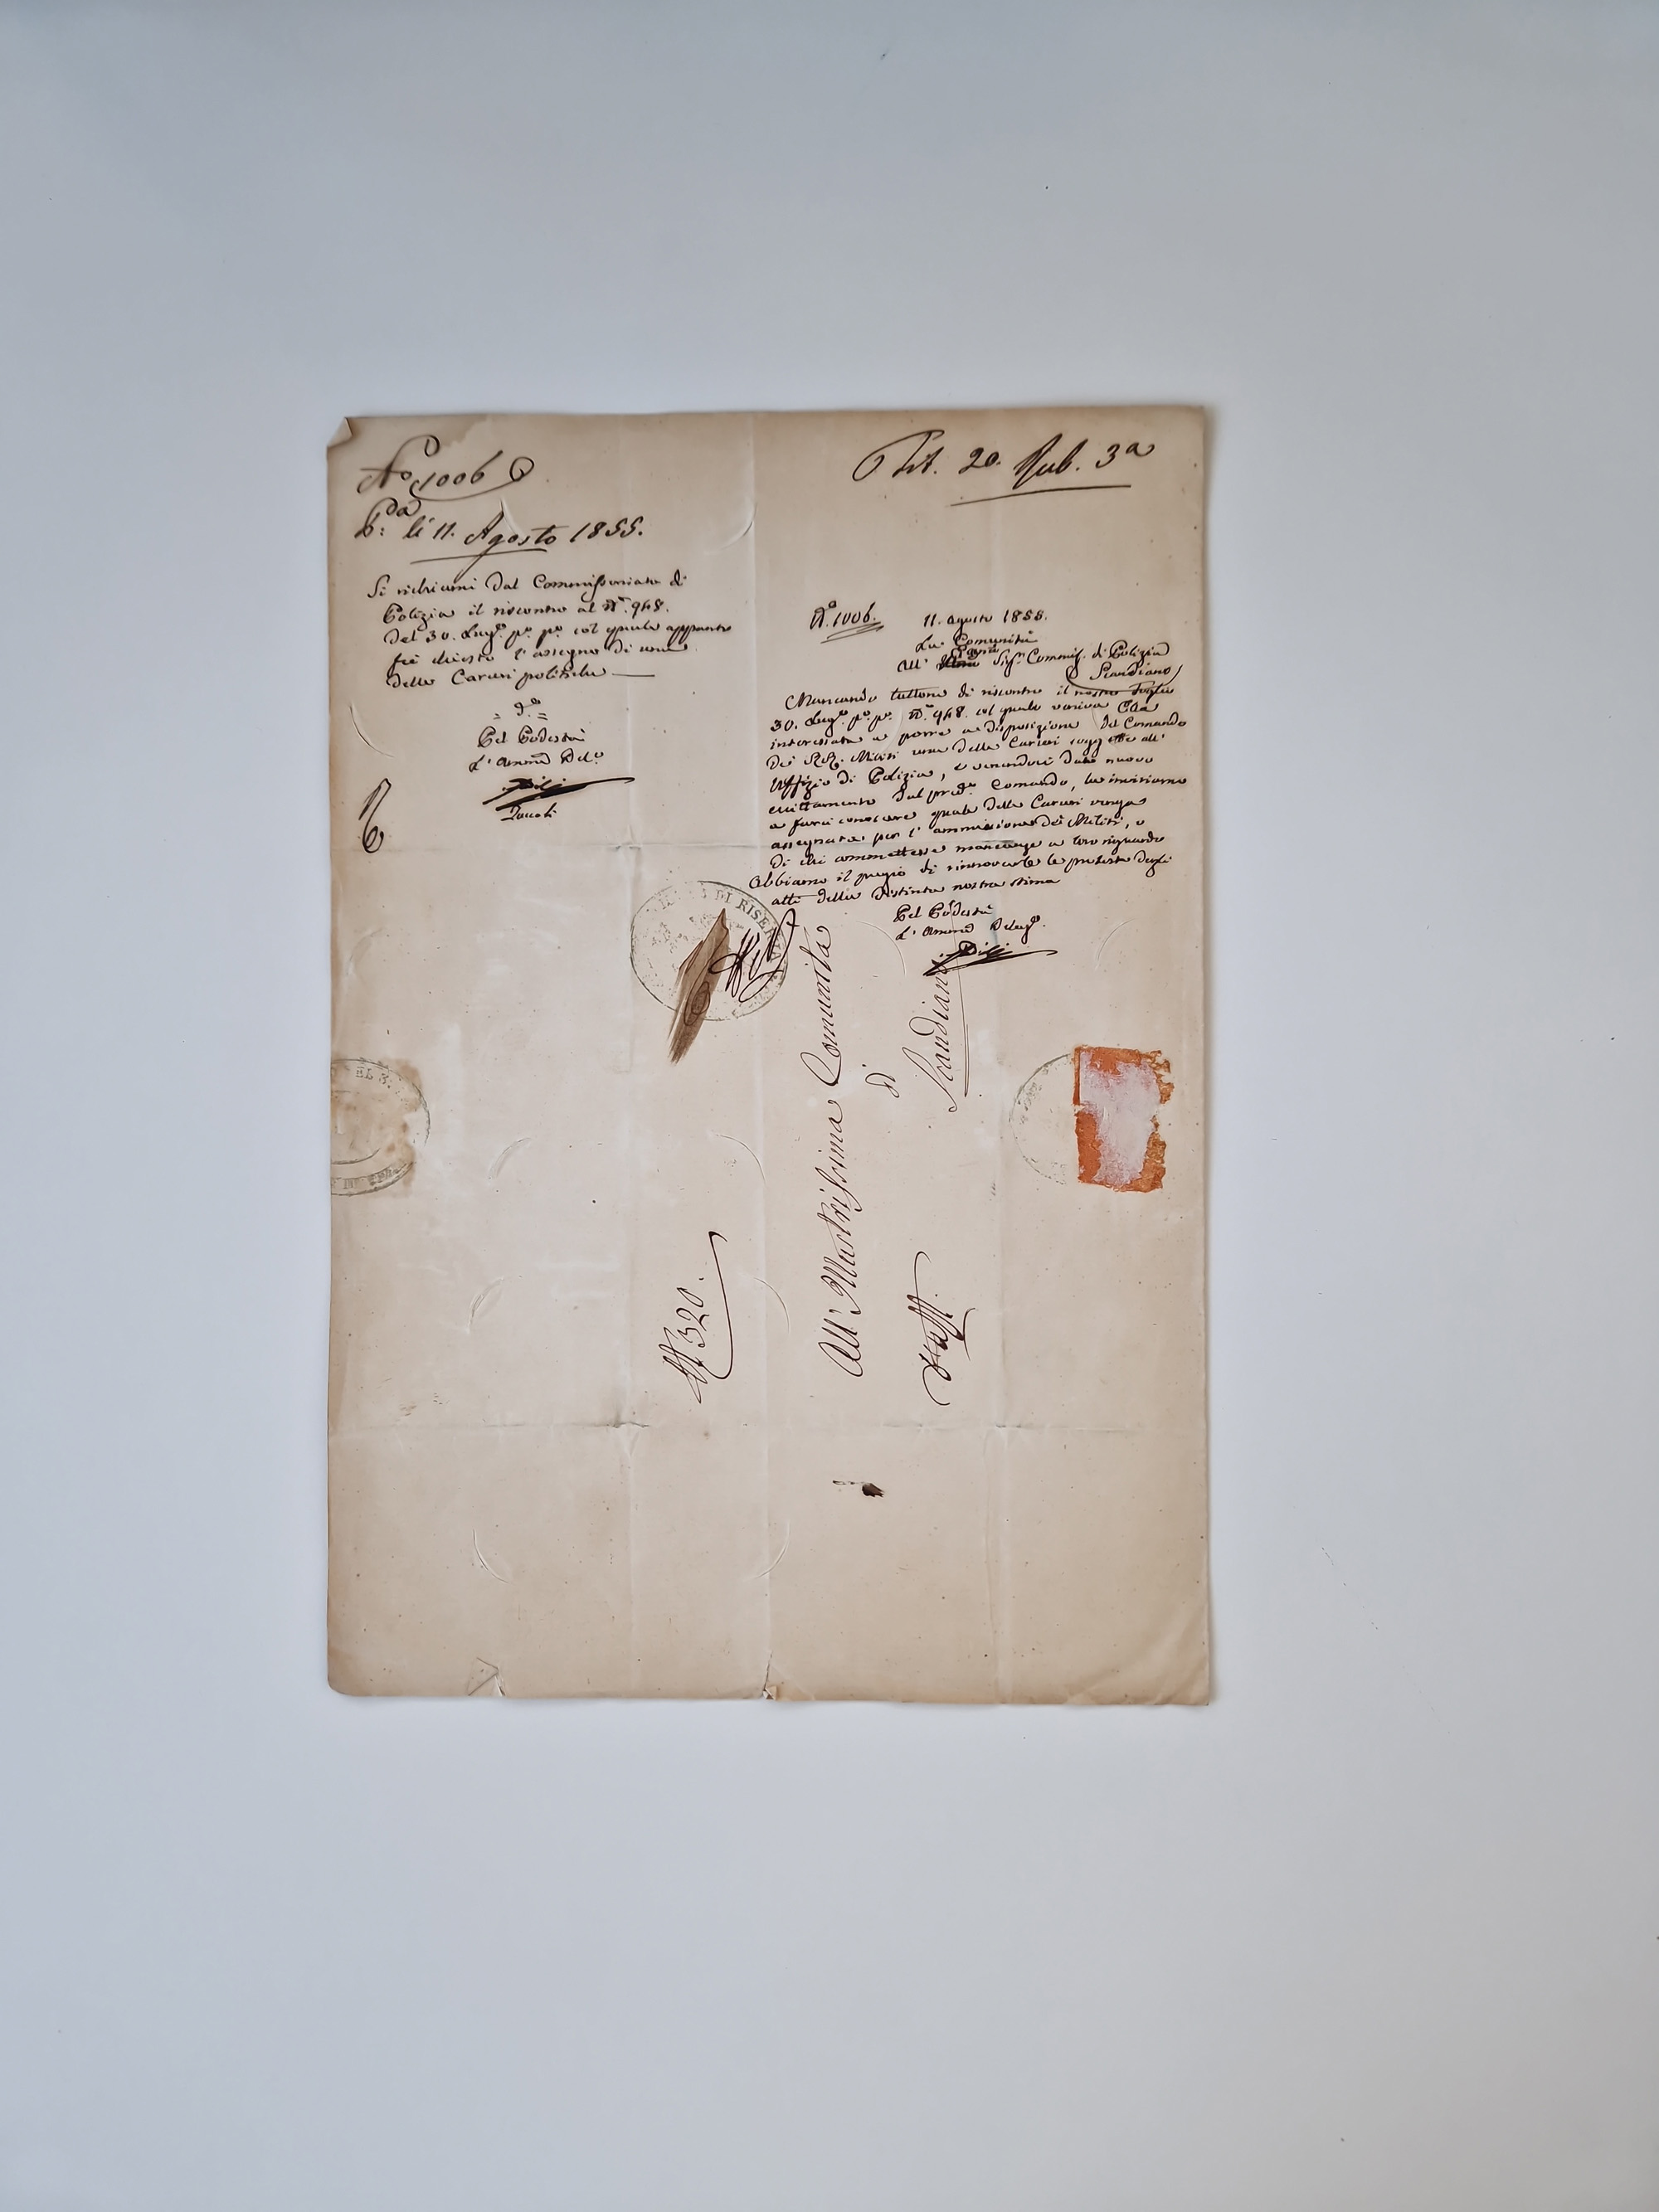 No 1006
Pda: li 11. Agosto 1855.
Si richiami dal Commissariato di
Polizia il riscontro al N.° 948.
del 30. Lug.° p.° p.° col quale appunto
fu chiesto l'assegno di una
delle Carceri politiche —
= d.° =
Pel Podestà
L'Amm Del.°
Tit. 20. Rub. 3a
N.° 1006. 11. Agosto 1855.
La Comunità
All' Sig.r Commis. di Polizia
Scandiano
Mancando tuttora di riscontro il nostro foglio
30. Lug.° p.° p.° N.° 948. col quale veniva
interessata a porre a disposizione del Comando
dei R.R. una delle Carceri soggette all'
Uffizio di Polizia, e venendoci dato nuovo
eccitamento dal pred.° Comando, la invitiamo
a farci conoscere quale delle Carceri venga
assegnata per l'ammissione dei Militi, e
di chi a loro riguardo
Abbiamo il pregio di rinnovarle le proteste degli
atti della distinta nostra stima
Pel Podestà
L'Amm Deleg.°
DI RISE
EL 3.
N 320.
All' Illustrissima Comunità
di
Scandiano